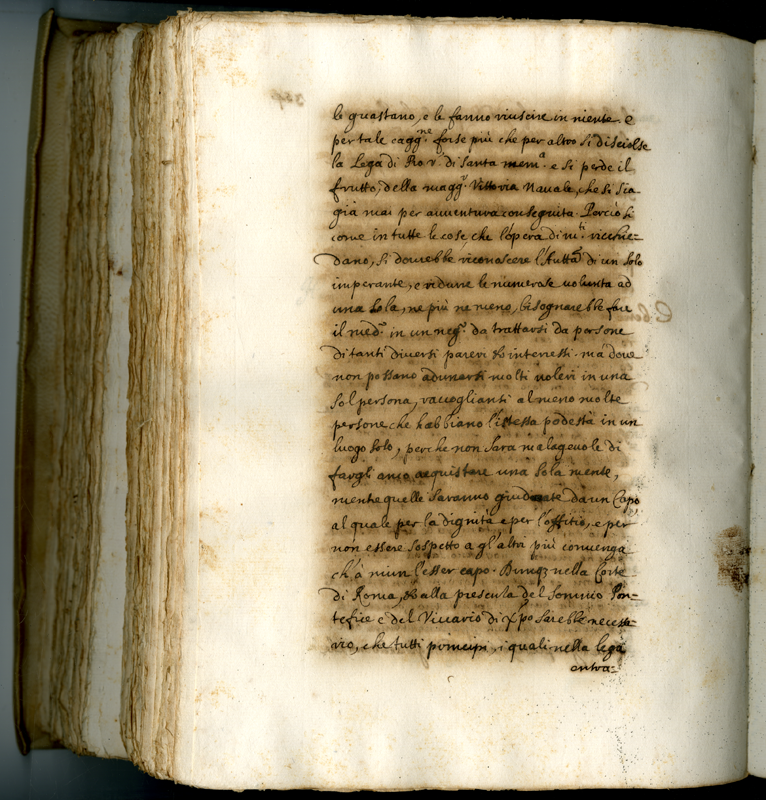 le guastano, e le fanno riuscire in niente. e
per tale cagg.ne forse più che per altro si disciolse
la Lega di Pio V. di santa mem.a e si perde il
frutto, della magg.r Vittoria Nauale, che si sia
già mai per auuentura conseguita. Perciò si
come in tutte le cose, che l'opera di m.ti richie=
dano, si dourebbe riconoscere l'Autt.à di un solo
imperante, e ridurre le numerose uolunta ad
una sola, ne più ne meno, bisognarebbe fare
il med.o in un neg.o da trattarsi da persone
di tanti diuersi pareri & interessi. mà doue
non possano adunarsi molti uoleri in una
sol persona, raccoglianti al meno molte
persone che habbiano l'istessa podestà in un
luogo solo, perche non sara malageuole di
fargli anco acquistare una sola mente,
mentre quelle saranno guidate da un Capo
al quale per la dignità e per l'offitio, e per
non essere sospetto a gl'altri più conuenga
ch'à niun l'esser capo. Dunq3 nella Corte
di Roma, & alla presenza del sommo Pon=
tefice e del Vicario di Xpo sarebbe necessa=
rio, che tutti principi, i quali nella lega
entra=